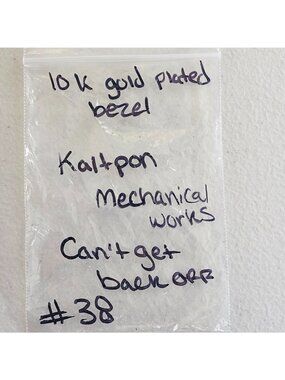 10 K gold plated
bezel
Kaltpon
Mechanical
works
Can't get
back OFF
#38